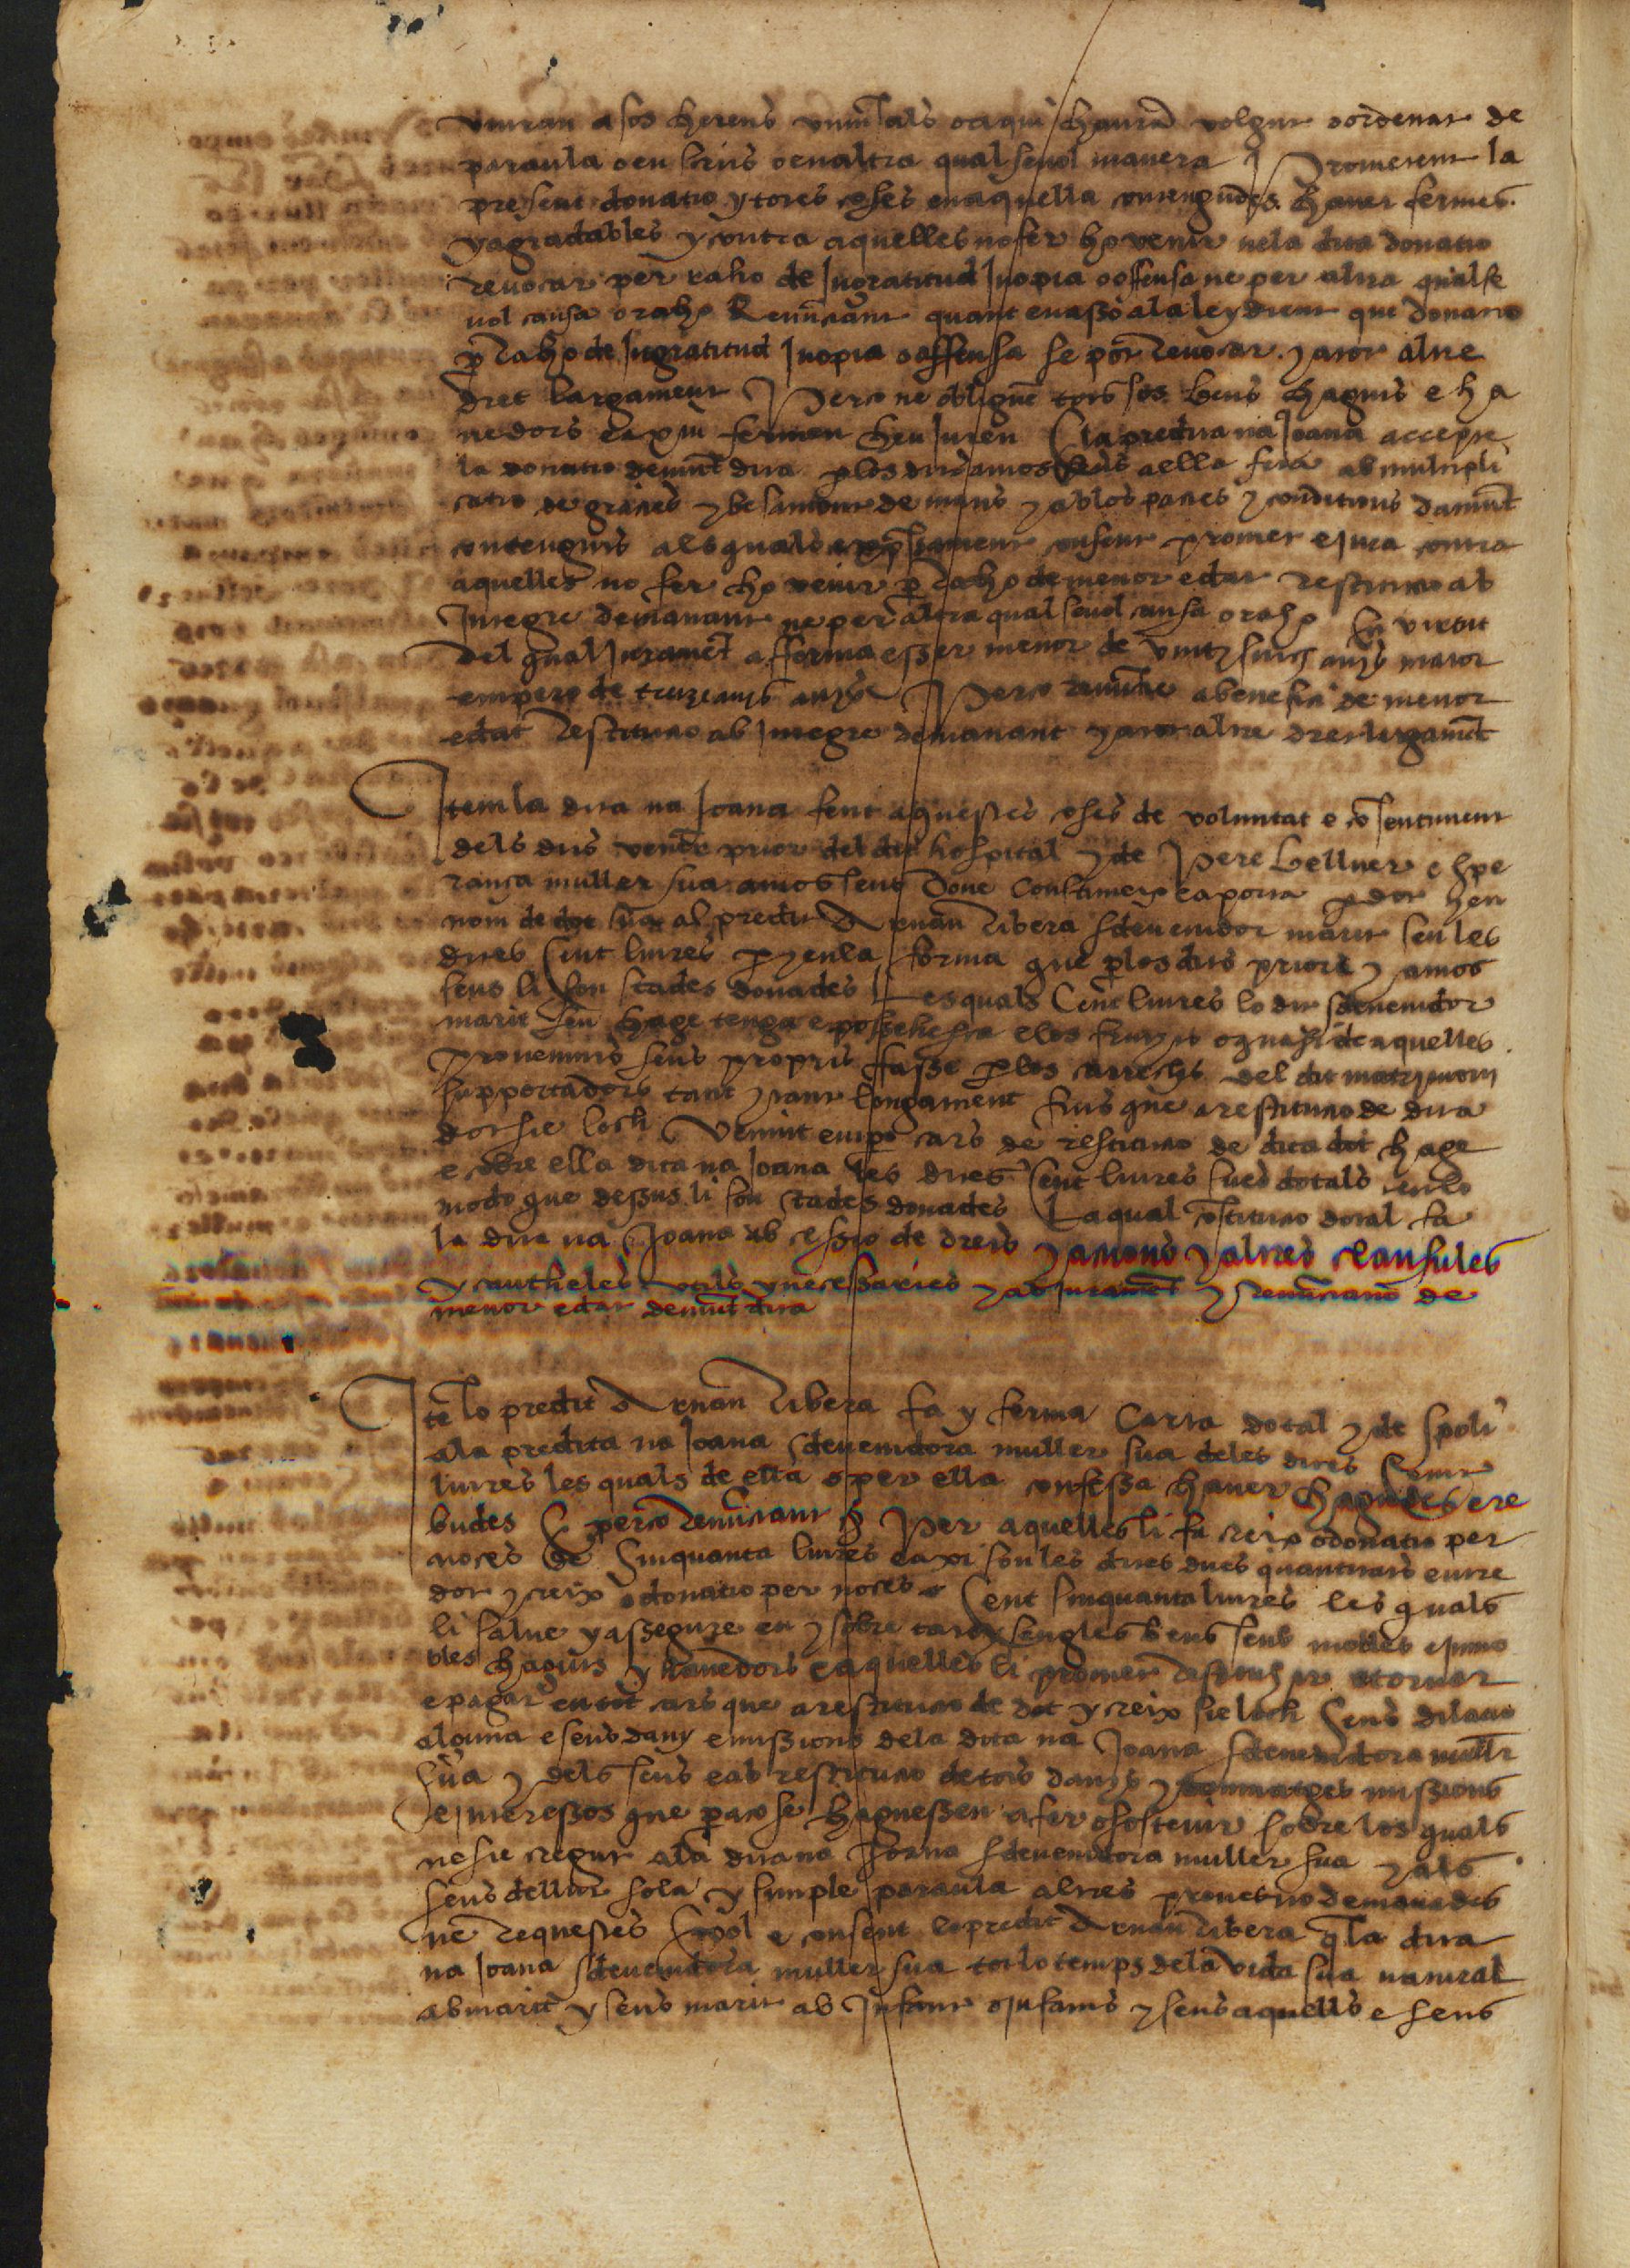 viuran a sos hereus vniuersals o a qui haura volgut o ordenat de
paraula o en scrits o en altra qual seuol manera Prometent la
present donatio y totes coses en aquella contengudes hauer fermes
y agradables y contra aquelles no fer ho venir ne la dita donatio
reuocar per raho de Ingratitud Inopia o offensa ne per altra qualse
uol causa o raho Renunciant quant en asso a la ley dient que donatio
p raho de Ingratitud Inopia o offensa se pot reuocar y a tot altre
dret largament Perço ne obliguen tots sos bens haguts e ha
uedors e axi u fermen heu Juren E la predita na Joana accepte
la donatio demunt dita p los dits amos seus a ella feta ab multipli
catio de gracies y besament de mans y ab los pactes y conditions damunt
contenguts als quals expressament consent promet e jura contra
aquelles no fer ho venir p raho de menor edat restitutio ab
Integre demanant ne per altra qual seuol causa o raho En virtut
del qual Jurament afferma esser menor de vint y sinch anys maior
empero de tretze anys Perço renuncie a benefici de menor
edat restitutio ab Integre demanant y a tot altre dret largament
Item la dita na Joana fent aquestes coses de voluntat e consentiment
dels dits prior del dit hospital y de Pere bellver e Spe
rança muller sua amos seus done constituex e aporta p dot y en
nom de dot sua al predit Arnau Ribera sdeuenidor marit seu les
dites Cent liures p y en la forma que p los dits prior y amos
seus li son stades donades Les quals Cent liures lo dit sdeuenidor
marit seu hage tenga e possehesca e los fruyts o quasi de aquelles
prouenints seus propris fasse p los carrechs del dit matrimoni
supportadors tant y tant longament fins que a restitutio de dita
dot sie loch Venint empo cars de restitutio de dita dot hage
e cobre ella dita na Joana les dites Cent liures sues dotals en lo
modo que dessus li son stades donades La qual constitutio dotal fa
la dita na Joana ab cessio de drets y actions y altres clausules
y cautheles vtils y necessaries y ab jurament y renunciatio de
menor edat demunt dita
Ite lo predit Arnau Ribera fa y ferma Carta dotal y de spoli
a la predita na Joana sdeuenidora muller sua de les dites Cent
liures les quals de ella o per ella confessa hauer hagudes e re
budes E perço renunciant Per aquelles li fa creix o donatio per
noces de Sinquanta liures e axi son les dites dues quantitats entre
dot y creix o donatio per noces Cent sinquanta liures les quals
li salue y assegure en y sobre tots y sengles bens seus mobles e jmmo
bles haguts y hauedors e aquelles li promet restituhir e tornar
e pagar en tot cars que a restitutio de dot y creix sie loch Sens dilatio
alguna e sens dany e missions dela dita na Joana sdeuenidora mullr
sua y dels seus e ab restitutio de tots danys y dampnatges missions
e interessos que p aço se haguessen a fer o sostenir sobre los quals
ne sie cregut a la dita na Joana sdeuenidora muller sua y als
seus de llur sola y simple paraula altres proues no demanades
ne requestes E vol e consent lo predit Arnau Ribera q la dita
na Joana sdeuenidora muller sua tot lo temps dela vida sua natural
ab marit y sens marit ab Infant o Infants y sens aquells e sens